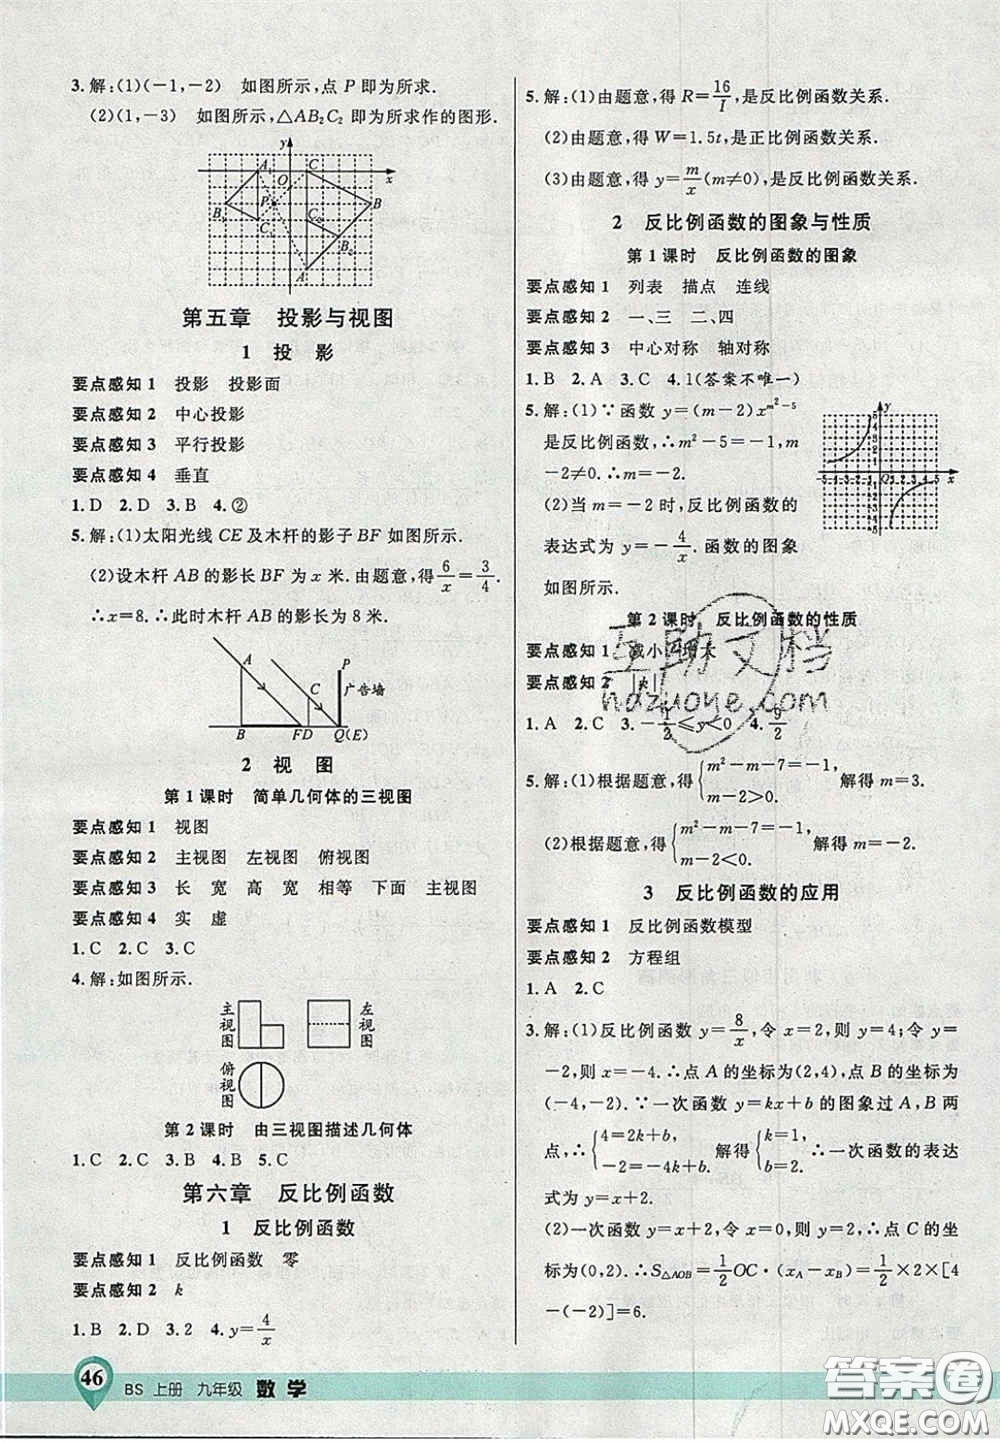 3.解:(1)(-1,-2) 如图所示,点 P 即为所求.
(2)(1,-3) 如图所示,△AB₂C₂ 即为所求作的图形.
y
A₁ C
O x
B₁ P B
C₁ C₂
B₂
A
第五章 投影与视图
1 投 影
要点感知 1 投影 投影面
要点感知 2 中心投影
要点感知 3 平行投影
要点感知 4 垂直
1.D 2.D 3.B 4.②
5.解:(1)太阳光线 CE 及木杆的影子 BF 如图所示.
(2)设木杆 AB 的影长 BF 为 x 米.由题意,得6/x=3/4.
∴x=8.∴此时木杆 AB 的影长为 8 米.
A P
C 广告墙
B FD Q(E)
2 视 图
第 1 课时 简单几何体的三视图
要点感知 1 视图
要点感知 2 主视图 左视图 俯视图
要点感知 3 长 宽 高 宽 相等 下面 主视图
要点感知 4 实 虚
1.C 2.C 3.C
4.解:如图所示.
主视图 左视图
俯视图
第 2 课时 由三视图描述几何体
1.C 2.C 3.B 4.B 5.C
第六章 反比例函数
1 反比例函数
要点感知 1 反比例函数 零
要点感知 2 k
1.B 2.D 3.2 4.y=4/x
5.解:(1)由题意,得 R=16/I,是反比例函数关系.
(2)由题意,得 W=1.5t,是正比例函数关系.
(3)由题意,得 y=m/x(m≠0),是反比例函数关系.
2 反比例函数的图象与性质
第 1 课时 反比例函数的图象
要点感知 1 列表 描点 连线
要点感知 2 一、三 二、四
要点感知 3 中心对称 轴对称
1.B 2.A 3.C 4.1(答案不唯一)
5.解:(1)∵函数 y=(m-2)x^(m²-5)
是反比例函数,∴m²-5=-1,m
-2≠0.∴m=-2.
(2)当 m=-2 时,反比例函数的
表达式为 y=-4/x.函数的图象
如图所示.
第 2 课时 反比例函数的性质
要点感知 1 减小 增大
要点感知 2 |k|
1.A 2.C 3.-1/2≤y<0 4.9/2
5.解:(1)根据题意,得{m²-m-7=-1, m-2>0. 解得 m=3.
(2)根据题意,得{m²-m-7=-1, m-2<0. 解得 m=-2.
3 反比例函数的应用
要点感知 1 反比例函数模型
要点感知 2 方程组
1.A 2.C
3.解:(1)反比例函数 y=8/x,令 x=2,则 y=4;令 y=
-2,则 x=-4.∴点 A 的坐标为(2,4),点 B 的坐标为
(-4,-2).∵一次函数 y=kx+b 的图象过 A,B 两
点,∴{4=2k+b, -2=-4k+b. 解得{k=1, b=2. ∴一次函数的表达
式为 y=x+2.
(2)一次函数 y=x+2,令 x=0,则 y=2,∴点 C 的坐
标为(0,2).∴S△AOB=1/2OC·(xA-xB)=1/2×2×[4
-(-2)]=6.
46 BS 上册 九年级 数学
互助文档
hdzuoye.com
答案圈
MXQE.COM